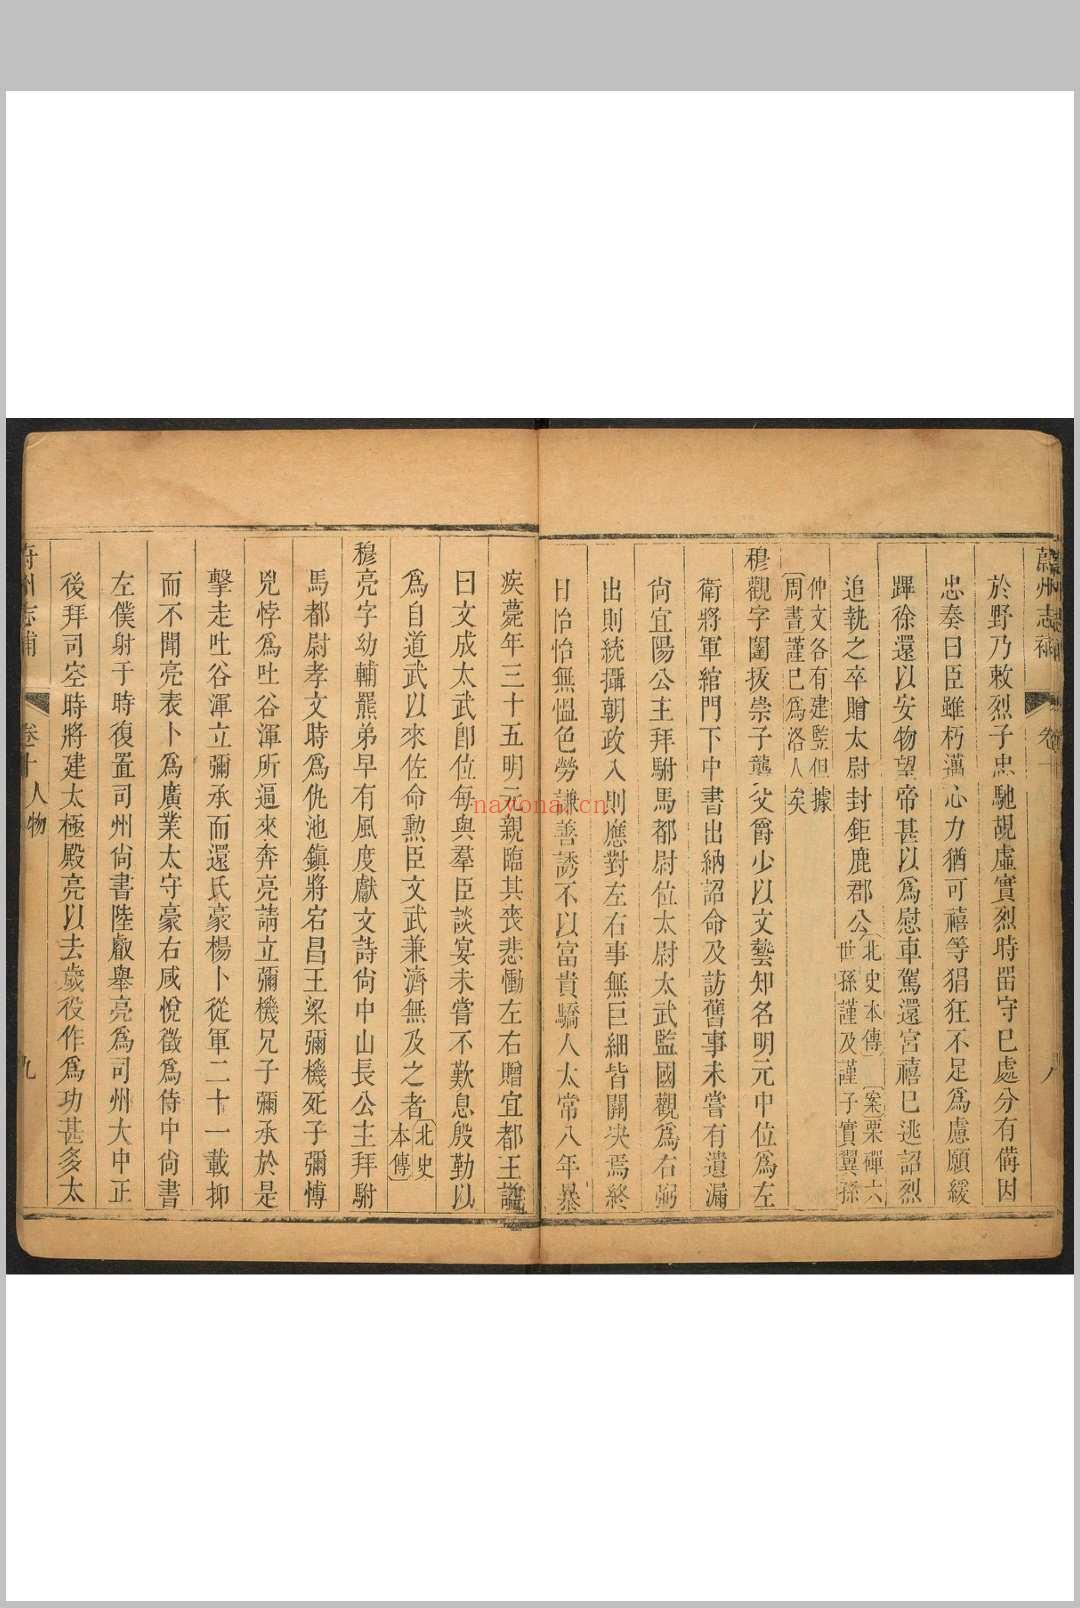 蔚州志補 卷十 八
於野乃敕烈子忠馳覘虛實烈時畱守已處分有備因
忠奏曰臣雖朽邁心力猶可禧等猖狂不足爲慮願緩
蹕徐還以安物望帝甚以爲慰車駕還宮禧已逃詔烈
追執之卒贈太尉封鉅鹿郡公
北史本傳〔案栗磾六
世孫謹及謹子實翼孫
仲文各有建監但據
周書謹已爲洛人矣
穆觀字闥拔崇子襲父爵少以文藝知名明元中位爲左
衛將軍綰門下中書出納詔命及訪舊事未嘗有遺漏
尚宜陽公主拜駙馬都尉位太尉太武監國觀爲右弼
出則統攝朝政入則應對左右事無巨細皆關決焉終
日怡怡無慍色勞謙善誘不以富貴驕人太常八年暴
疾薨年三十五明元親臨其喪悲慟左右贈宜都王諡
曰文成太武卽位每與羣臣談宴未嘗不歎息殷勤以
爲自道武以來佐命勲臣文武兼濟無及之者
北史
本傳
穆亮字幼輔羆弟早有風度獻文詩尚中山長公主拜駙
馬都尉孝文時爲仇池鎭將宕昌王梁彌機死子彌博
兇悖爲吐谷渾所逼來奔亮請立彌機兄子彌承於是
擊走吐谷渾立彌承而還氐豪楊卜從軍二十一載抑
而不聞亮表卜爲廣業太守豪右咸悅徵爲侍中尚書
左僕射于時復置司州尚書陸叡舉亮爲司州大中正
後拜司空時將建太極殿亮以去歲役作爲功甚多太
蔚州志補 卷十 人物 九
nayona.cn